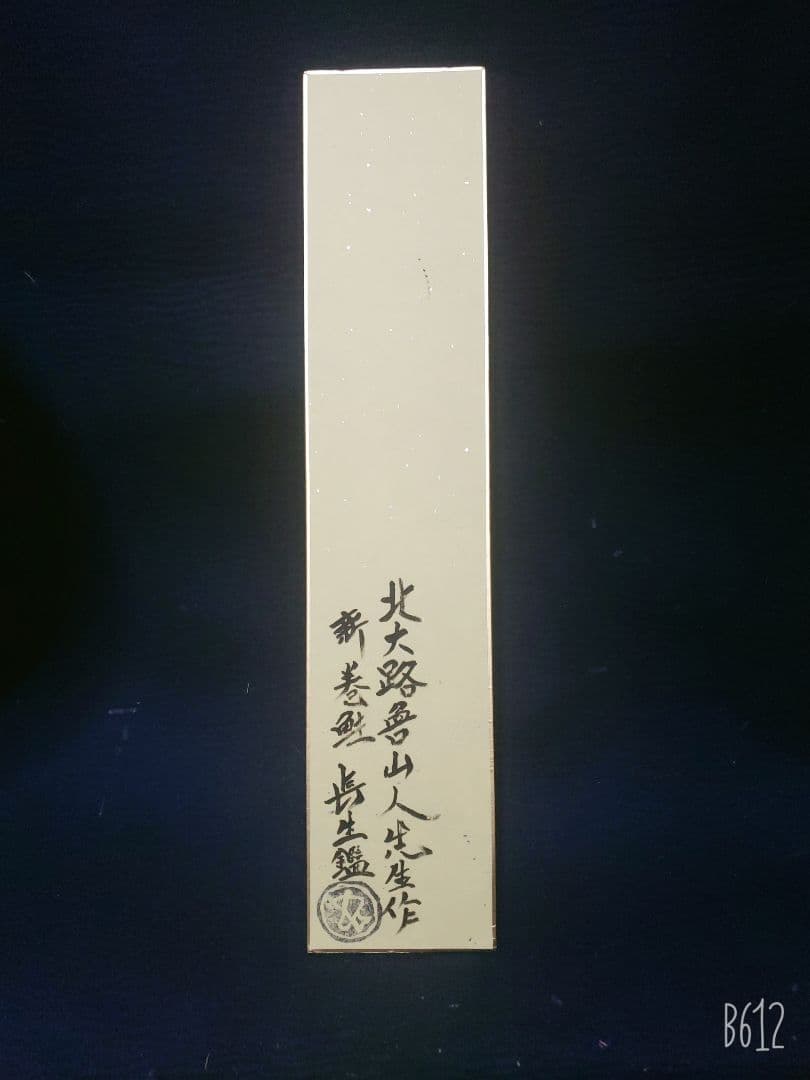 北大路魯山人先生作
新巻鮭 長生鑑
B612